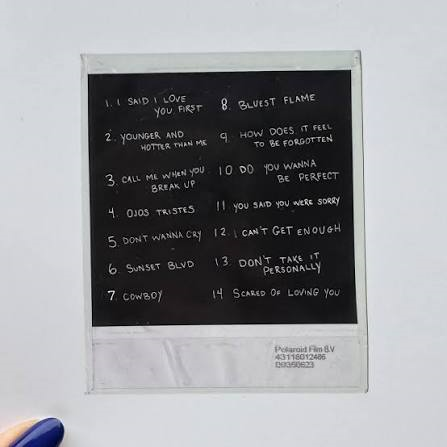 1. I SAID I LOVE
YOU FIRST
2. YOUNGER AND
HOTTER THAN ME
3. CALL ME WHEN YOU
BREAK UP
4. OJOS TRISTES
5. DON'T WANNA CRY
6. SUNSET BLVD
7. COWBOY
8. BLUEST FLAME
9. HOW DOES IT FEEL
TO BE FORGOTTEN
10 DO YOU WANNA
BE PERFECT
11 YOU SAID YOU WERE SORRY
12. I CAN'T GET ENOUGH
13. DON'T TAKE IT
PERSONALLY
14 SCARED OF LOVING YOU
Polaroid Film B.V